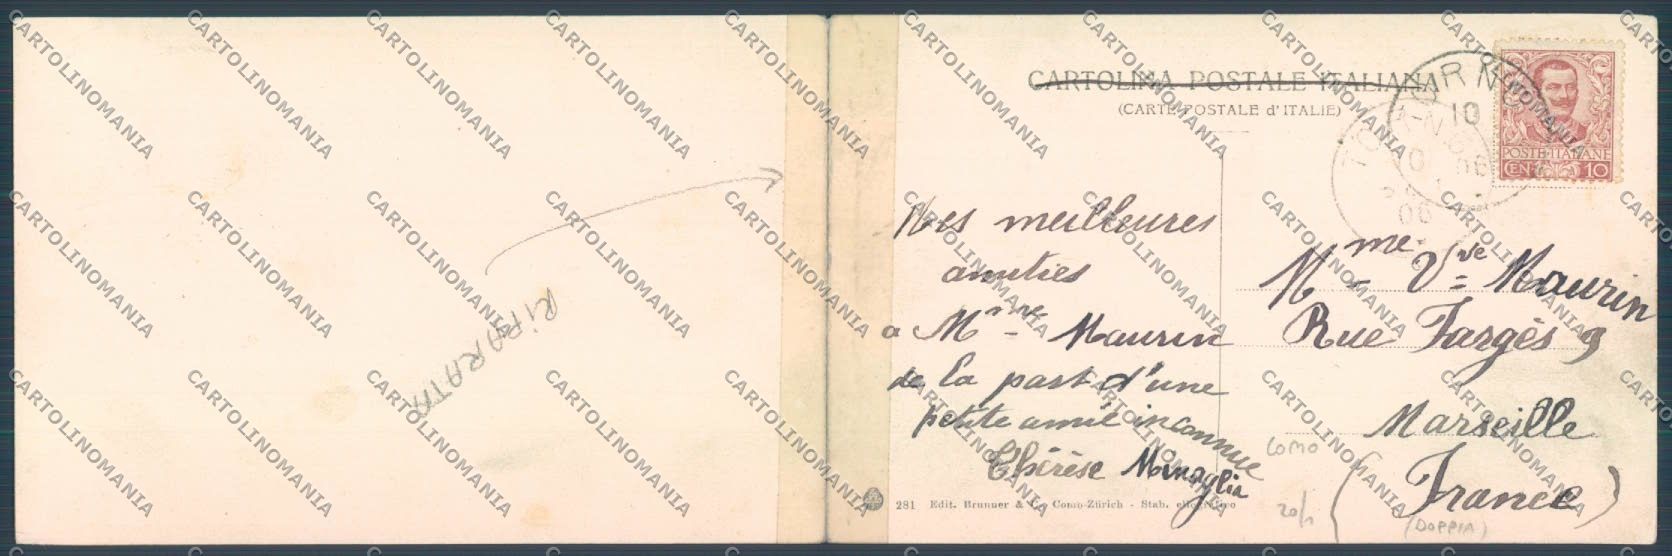 RIPARATA
CARTOLINA POSTALE ITALIANA
(CARTE POSTALE d'ITALIE)
TORNO
10
06
POSTE ITALIANE
CENT. 10
Mes meilleures
amitiés
a Mme Maurin
de la part d'une
petite amie inconnue
Thérèse
Mme Vve Maurin
Rue Fargès 9
Marseille
(France)
COMO
20/1
(DOPPIA)
281 Edit. Brunner & C. Como-Zürich - Stab. eliografico
CARTOLINOMANIA